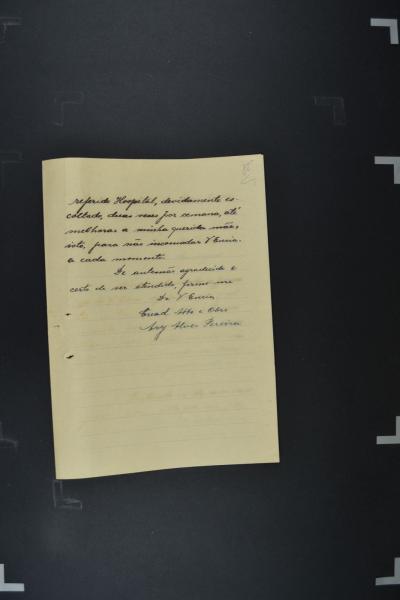 referido Hospital, devidamente es-
coltado, duas vezes por semana, até
melhorar a minha querida mãe,
isto, para não incomodar V Excia.
a cada momento.
De antemão agradecido e
certo de ser atendido, firmo-me
De V Excia
Cread. Atto e Obro
Ary Alves Pereira